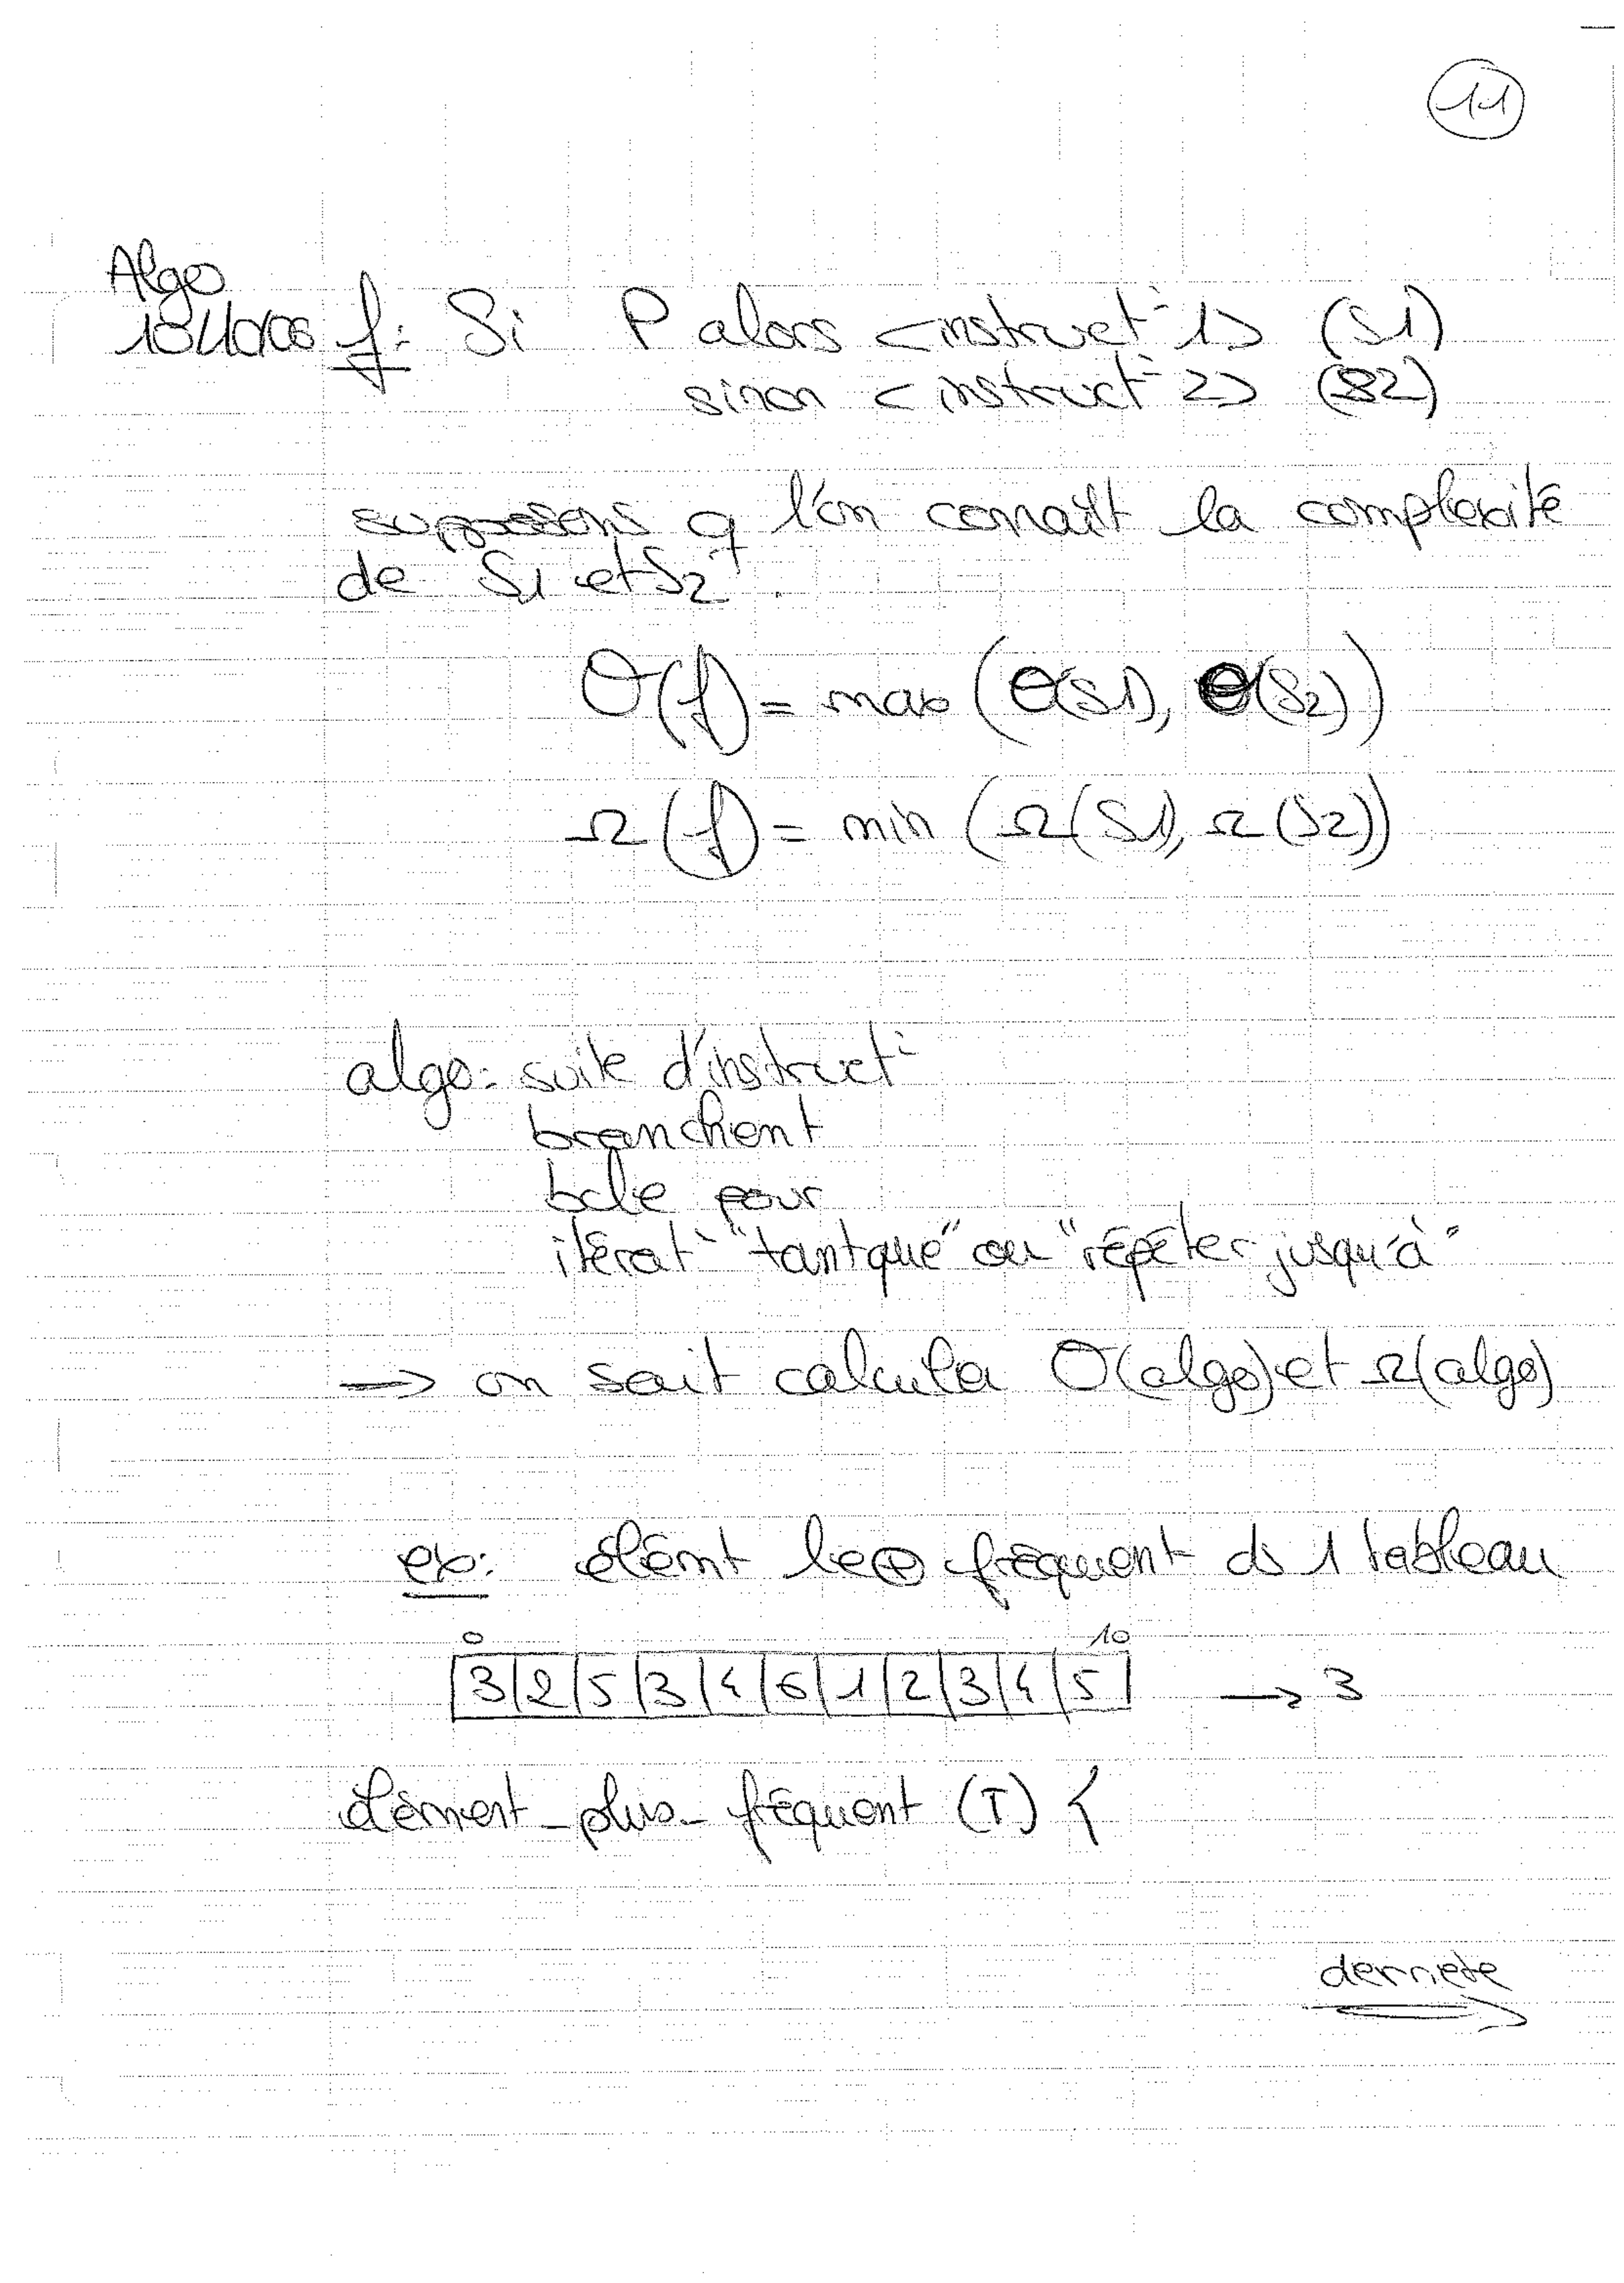 11
Algo
18/10/06 f: Si P alors <instruct° 1> (S1)
sinon <instruct° 2> (S2)
supposons q l'on connaît la complexité
de S1 et S2.
O(f) = max (O(S1), O(S2))
Ω(f) = min (Ω(S1), Ω(S2))
algo: suite d'instruct°
branchent
bcle pour
itérat° "tantque" ou "répéter jusqu'à"
→ on sait calculer O(algo) et Ω(algo)
ex: élémt le ⊕ fréquent ds 1 tableau
0 10
3|2|5|3|4|6|1|2|3|4|5| → 3
élément_plus_fréquent (T) {
derrière